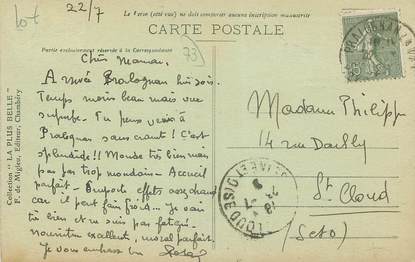 lot
22/7
Le Verso (très vu) ne doit contenir aucune inscription manuscrite
CARTE POSTALE
Partie exclusivement réservée à la Correspondance
73
Chère Maman.
Arrivée Pralognan hier soir.
Temps moins beau mais vue
superbe. Tu peux venir à
Pralognan sans crainte! C'est
splendide!! Monde très bien mais
pas trop mondain - Accueil
parfait - effets assez chauds
car il peut faire froid. Je vais
très bien et ne suis pas fatiguée.
Nourriture excellente, moral parfait.
Je vous embrasse
Collection "LA PLUS BELLE"
F. de Migieu, Editeur, Chambéry
PRALOGNAN
Madame Philippe
14 rue Dailly
St Cloud
(S et O)
ST CLOUD
SEINE ET OISE